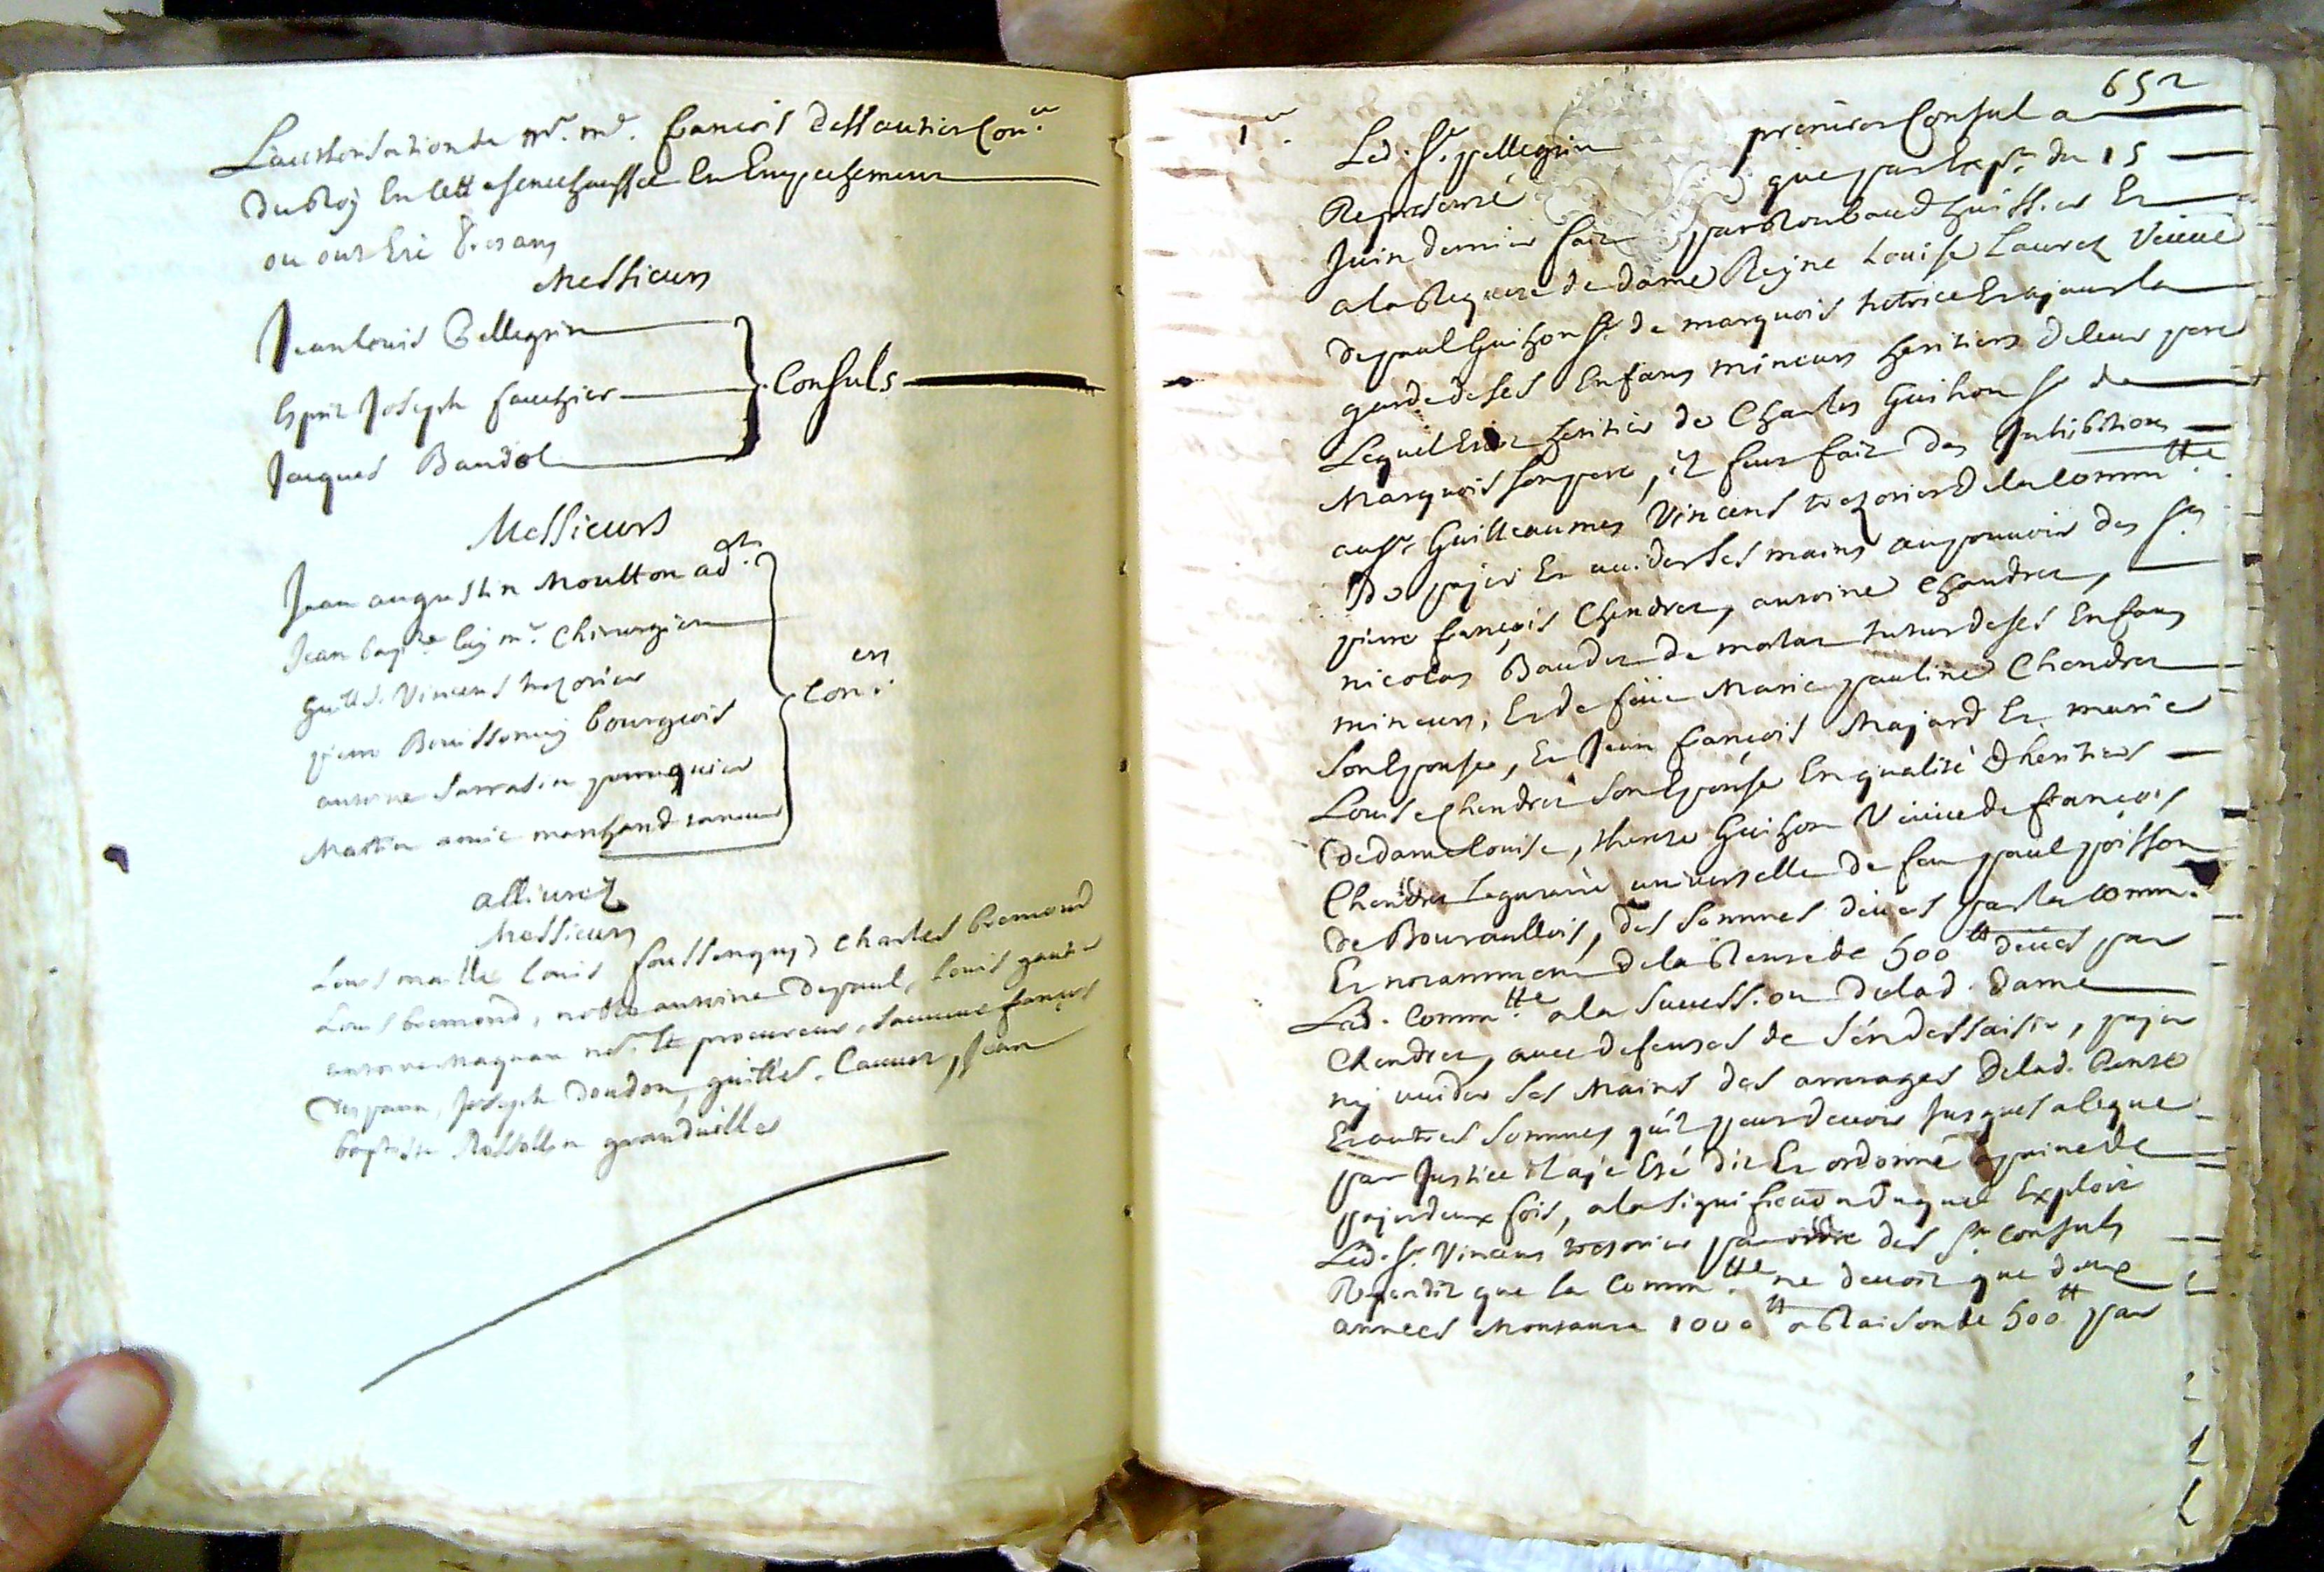 L'authorisation de Mr. me. françois dessautier Con.er
du Roy En cette seneschaussée En Empechement
ou ont Eté presans
Messieurs
Jean louis Pellegrin
Esprit Joseph fauchier
Consuls
Jacques Baudol
Messieurs
Jean augustin Moutton ad.t
Jean bap.te mr. Chirurgien
Guill.e Vincens trezorier
Con.ers
pierre Bouissony bourgeois
antoine Sarrasin perruquier
Martin amic marchand taneur
allivrez
Messieurs
Louis maille louis foussenquy Charles bremond
Louis bremond, noble antoine depaul, louis gautier
antoine Magnan no.re procureur françois
Joseph Doudon, guilles. Jean
baptiste Rossollin granduille
652
1er.
Led. Sr. pellegrin premier Consul a
Representé que par Expt. du 15
Juin dernier fait par Roubaud huissier Et
a la Requete de dame Reyne Louise Lauret Veuve
de paul Guihon Sr. de marquois tutrice Et ayant la
garde de ses Enfans mineurs heritiers de leur pere
Lequel Etoit heritier de Charles Guihon Sr de
Marquois son pere, il feut fait des Inhibitions
au Sr. Guilleaumes Vincens trezorier de la Comm.tte
De payer Et vuider ses mains au pouvoir des Srs
pierre françois Chendret, antoine Chendret,
nicolas Baudet de matar tuteur de ses Enfans
mineurs, Et de feüe Marie pauline Chendret
Son Epouse, Et Jean françois Majard Et marie
Louise Chendret Son Epouse En qualité d heritiers
de dame Louise, therese Guihon Veuve de françois
Chendret Legataire universelle de feu paul poisson
de Bouraullois, des sommes deües par la Comm.
Et notamment de la Rente de 500 tt deües par
Lad. Comm.tte a la succession de lad. dame
Chendret, avec defenses de s'en dessaisir, payer
ny vuider ses Mains des arrerages de lad. Rente
Et autres sommes qu'il peut devoir Jusques a ce que
par Justice il aye Eté dit Et ordonné a peine de
payer deux fois, a la signification duquel Exploit
Led. Sr. Vincens trezorier par ordre des Srs Consuls
Repondit que la Comm.tte ne devoit que deux
années Montant 1000 tt a Raison de 500 tt par